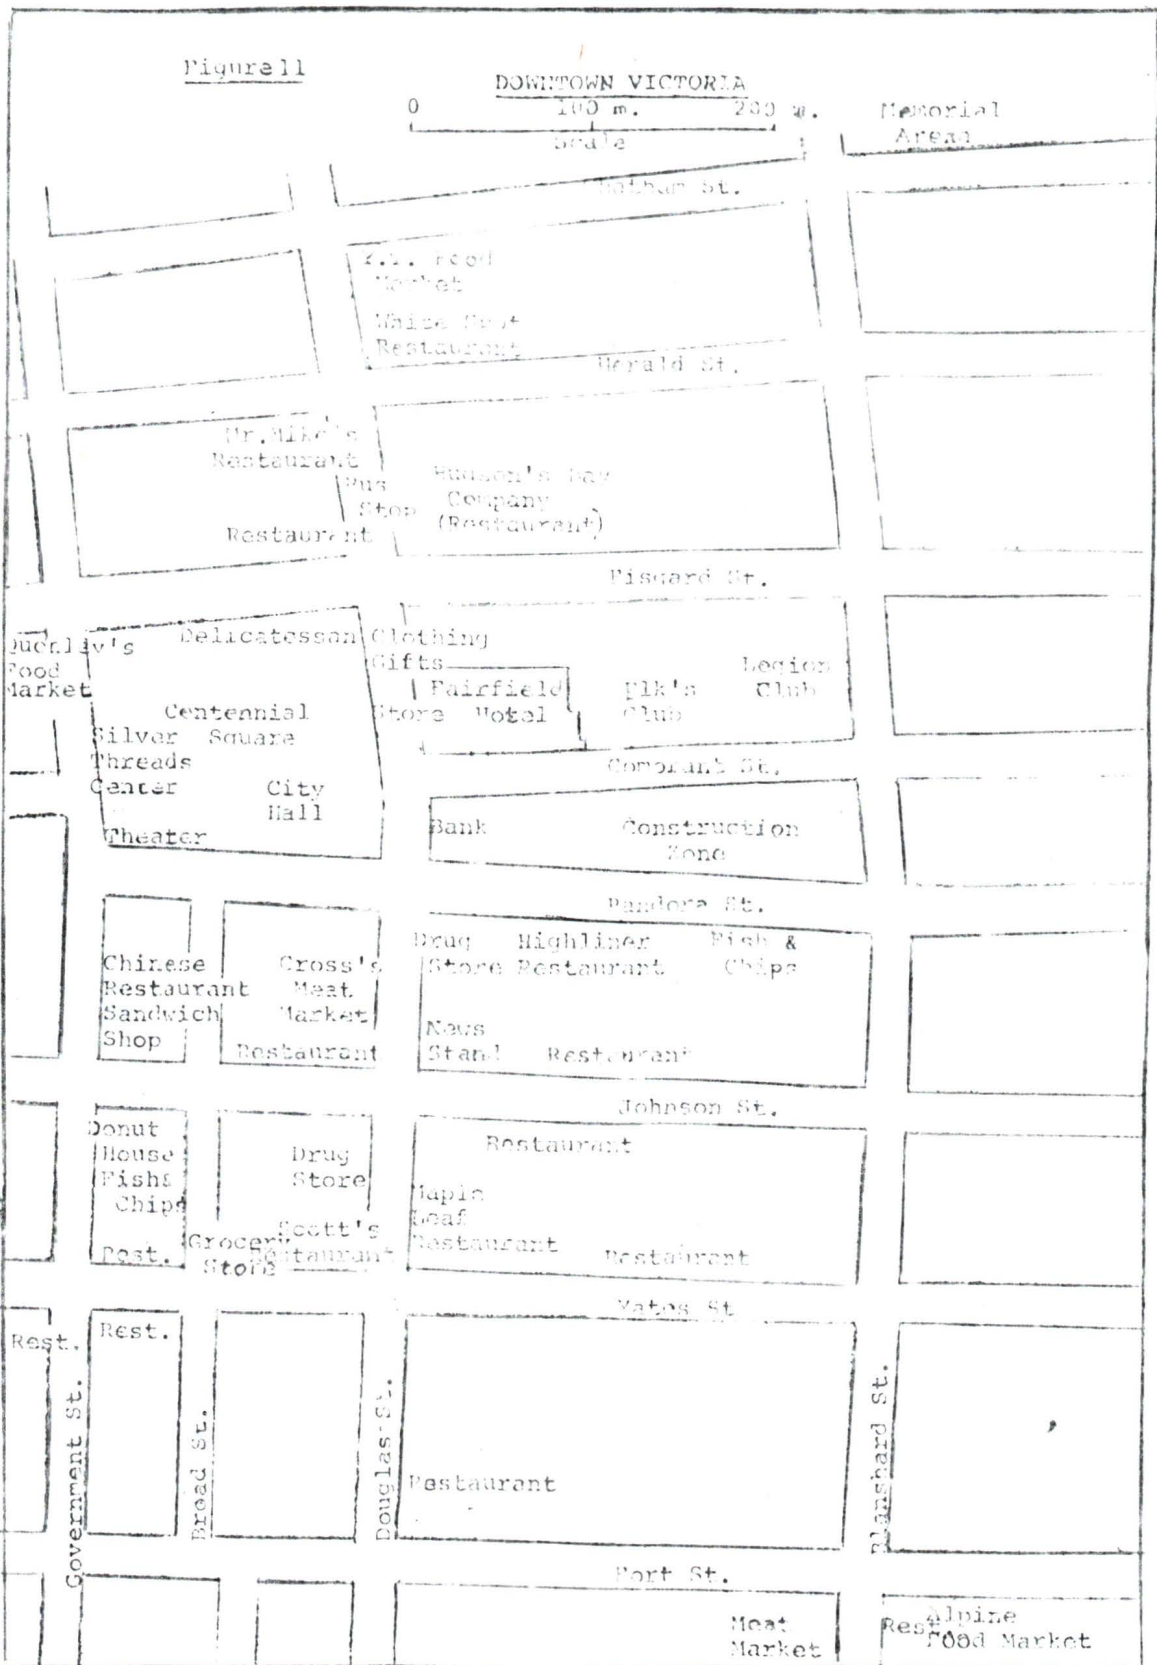 Figure11
DOWNTOWN VICTORIA
0 100 m. 200 m.
Scale
Memorial
Arena
Chatham St.
Food
Market
White Spot
Restaurant
Herald St.
Mr.Mike's
Restaurant
Bus
Stop
Hudson's Bay
Company
(Restaurant)
Restaurant
Fisgard St.
Food
Market
Delicatessan
Clothing
Gifts
Store
Fairfield
Hotel
Elk's
Club
Legion
Club
Centennial
Square
Silver
Threads
Center
City
Hall
Theater
Comorant St.
Bank
Construction
Zone
Pandora St.
Chinese
Restaurant
Sandwich
Shop
Cross's
Meat
Market
Restaurant
Drug
Store
Highliner
Restaurant
Fish &
Chips
News
Stand
Restaurant
Johnson St.
Donut
House
Fish&
Chips
Rest.
Drug
Store
Grocery
Store
Scott's
Restaurant
Restaurant
Maple
Leaf
Restaurant
Restaurant
Yates St
Rest.
Rest.
Government St.
Broad St.
Douglas St.
Blanshard St.
Restaurant
Fort St.
Meat
Market
Rest.
Alpine
Food Market